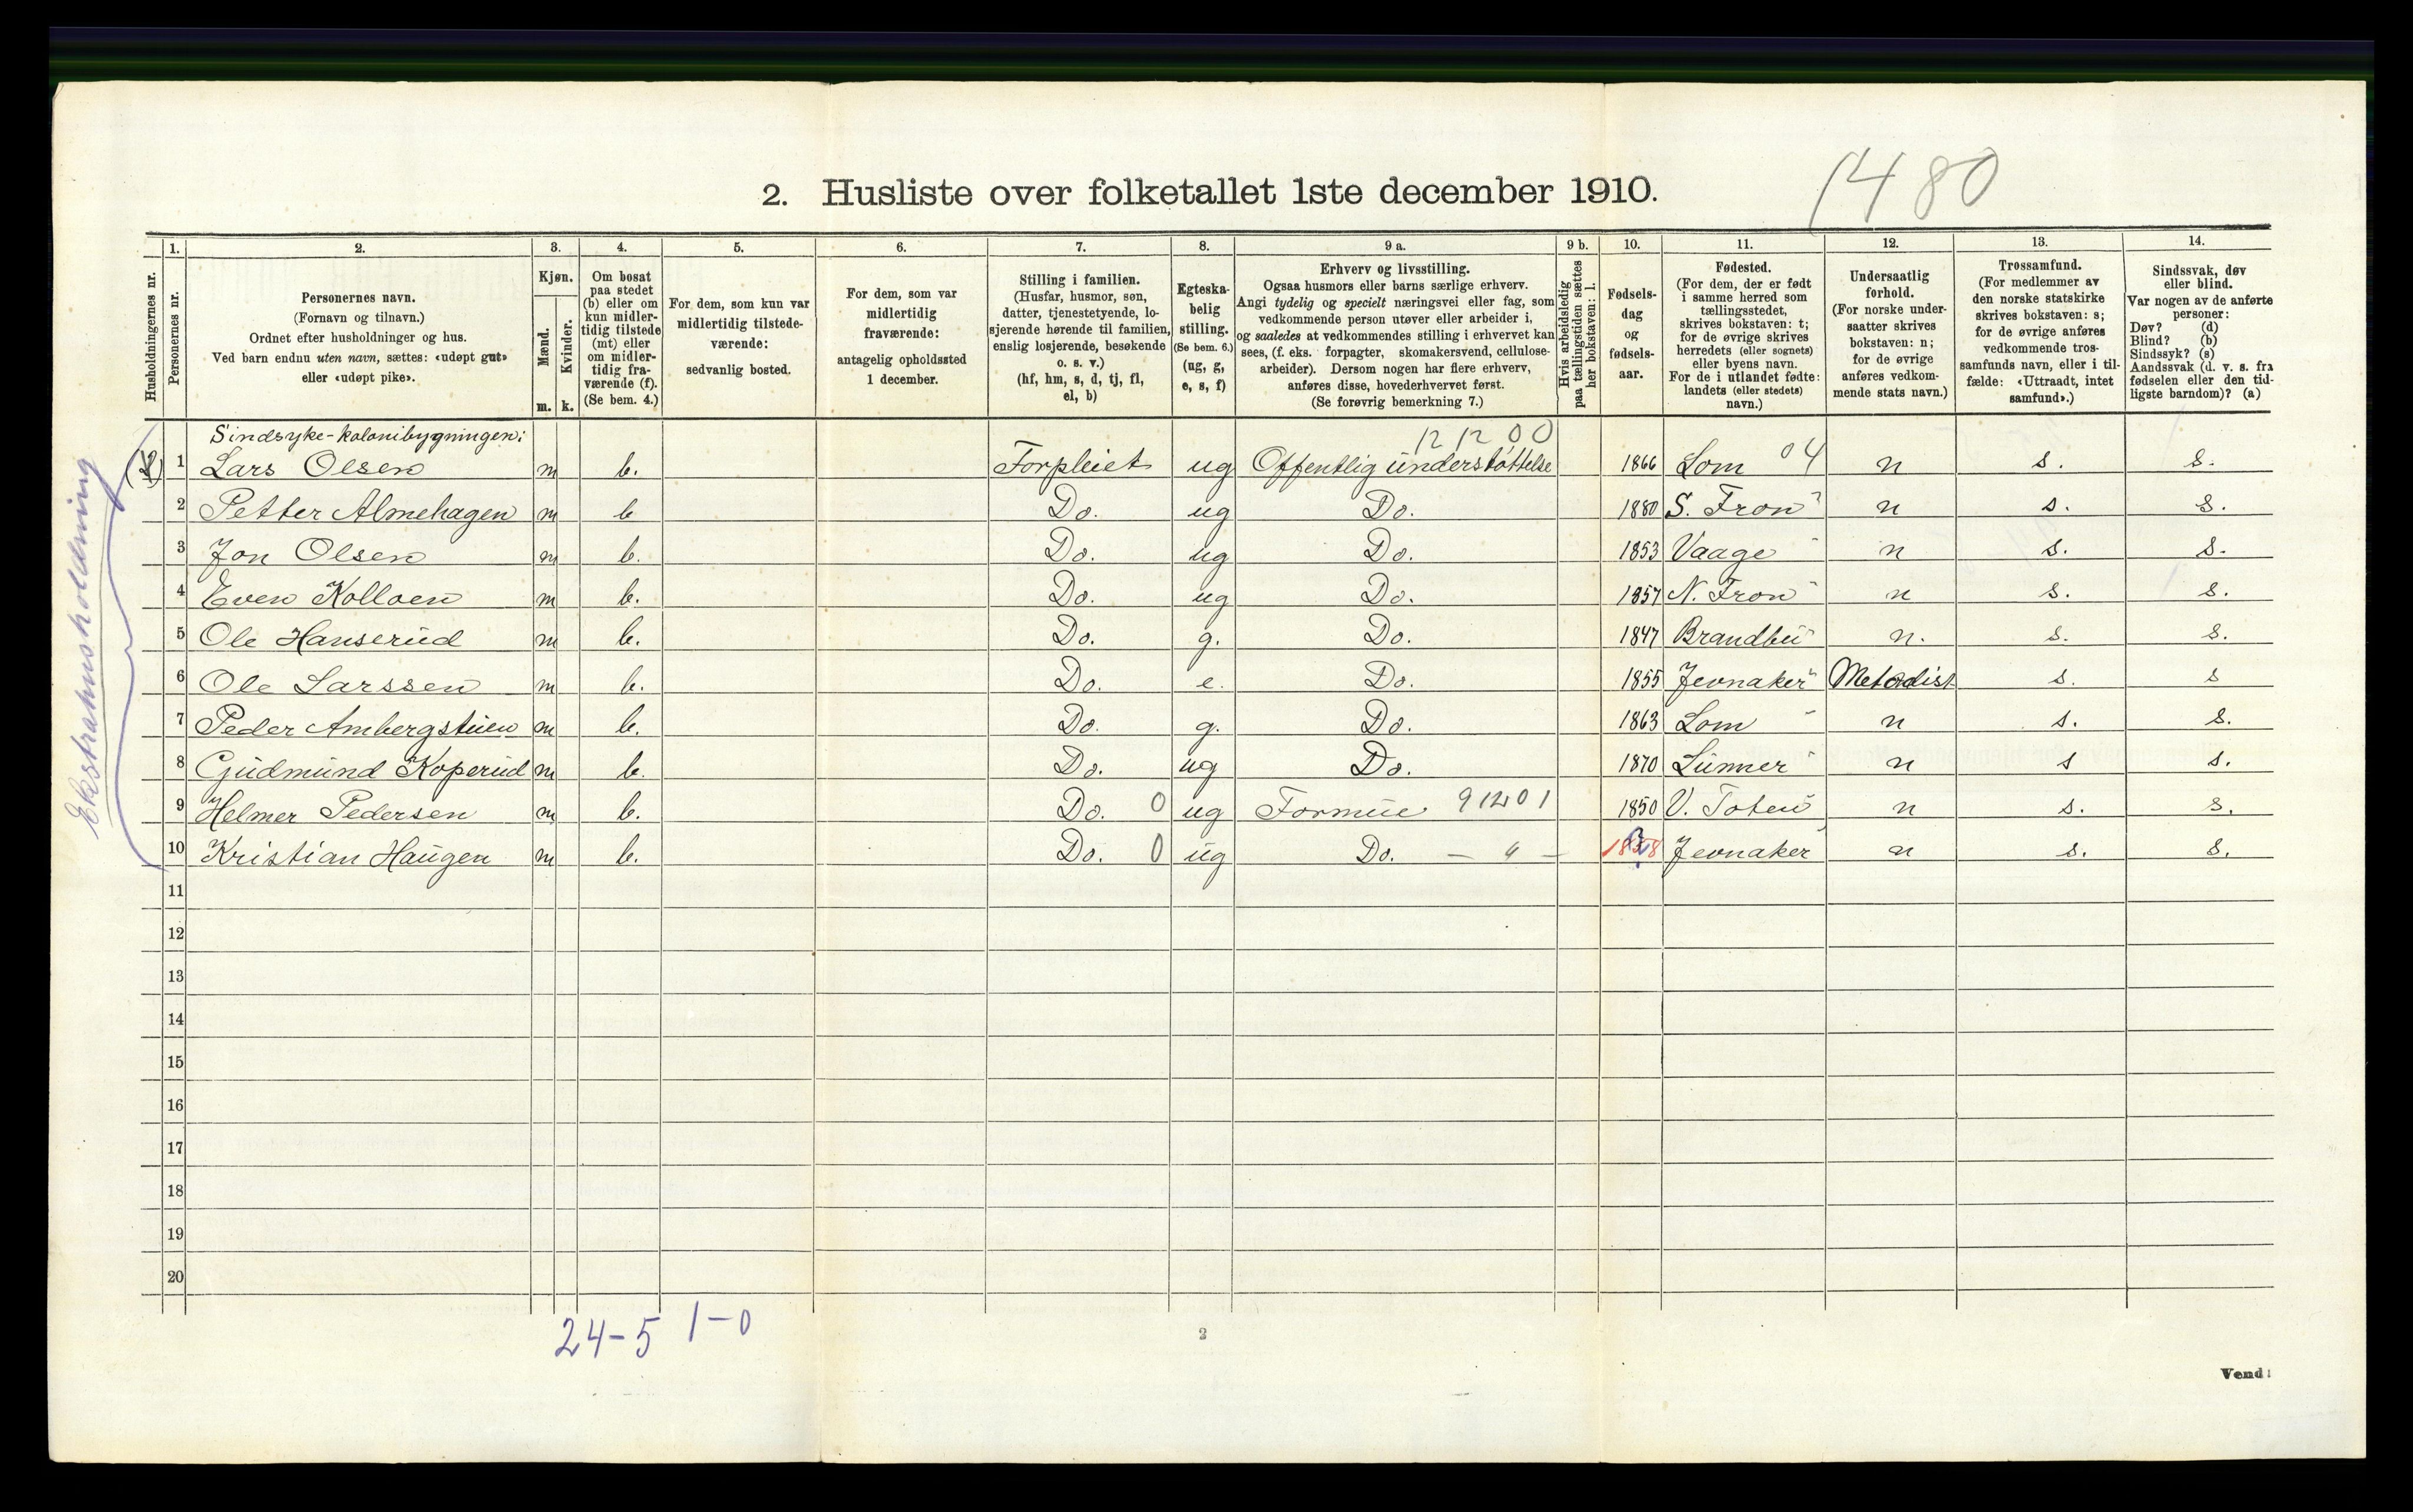 1480
2. Husliste over folketallet 1ste december 1910.
1. 2. 3. 4. 5. 6. 7. 8. 9 a. 9 b. 10. 11. 12. 13. 14.
Husholdningernes nr.
Personernes nr.
Personernes navn.
(Fornavn og tilnavn.)
Ordnet efter husholdninger og hus.
Ved barn endnu uten navn, sættes: «udøpt gut»
eller «udøpt pike».
Kjøn.
Mænd.
Kvinder.
m. k.
Om bosat
paa stedet
(b) eller om
kun midler-
tidig tilstede
(mt) eller
om midler-
tidig fra-
værende (f).
(Se bem. 4.)
For dem, som kun var
midlertidig tilstede-
værende:
sedvanlig bosted.
For dem, som var
midlertidig
fraværende:
antagelig opholdssted
1 december.
Stilling i familien.
(Husfar, husmor, søn,
datter, tjenestetyende, lo-
sjerende hørende til familien,
enslig losjerende, besøkende
o. s. v.)
(hf, hm, s, d, tj, fl,
el, b)
Egteska-
belig
stilling.
(Se bem. 6.)
(ug, g,
e, s, f)
Erhverv og livsstilling.
Ogsaa husmors eller barns særlige erhverv.
Angi tydelig og specielt næringsvei eller fag, som
vedkommende person utøver eller arbeider i,
og saaledes at vedkommendes stilling i erhvervet kan
sees, (f. eks. forpagter, skomakersvend, cellulose-
arbeider). Dersom nogen har flere erhverv,
anføres disse, hovederhvervet først.
(Se forøvrig bemerkning 7.)
Hvis arbeidsledig
paa tællingstiden sættes
her bokstaven: l.
Fødsels-
dag
og
fødsels-
aar.
Fødested.
(For dem, der er født
i samme herred som
tællingsstedet,
skrives bokstaven: t;
for de øvrige skrives
herredets (eller sognets)
eller byens navn.
For de i utlandet fødte:
landets (eller stedets)
navn.)
Undersaatlig
forhold.
(For norske under-
saatter skrives
bokstaven: n;
for de øvrige
anføres vedkom-
mende stats navn.)
Trossamfund.
(For medlemmer av
den norske statskirke
skrives bokstaven: s;
for de øvrige anføres
vedkommende tros-
samfunds navn, eller i til-
fælde: «Uttraadt, intet
samfund».)
Sindssvak, døv
eller blind.
Var nogen av de anførte
personer:
Døv? (d)
Blind? (b)
Sindssyk? (s)
Aandssvak (d. v. s. fra
fødselen eller den tid-
ligste barndom)? (a)
Ekstrahusholdning
Sindsyke-kolonibygningen: 12 12 00
1 Lars Olsen m b. Forpleiet ug Offentlig understøttelse 1866 Lom 04 n s. s.
2 Petter Almehagen m b Do. ug Do. 1880 S. Fron " n s. s.
3 Jon Olsen m b. Do. ug Do. 1853 Vaage " n s. s.
4 Even Kolloen m b. Do. ug Do. 1857 N. Fron " n s. s.
5 Ole Hanserud m b. Do. g. Do. 1847 Brandbu " n. s. s.
6 Ole Larssen m b. Do. e. Do. 1855 Jevnaker " Metodist s. s
7 Peder Ambergstuen m b. Do. g. Do. 1863 Lom " n s. s.
8 Gudmund Koperud m b. Do. ug Do. 1870 Lunner " n s s.
9 Helmer Pedersen m b. Do. 0 ug Formue 91201 1850 V. Toten " n s. s.
10 Kristian Haugen m b. Do. 0 ug Do. — " — Jevnaker n s. s.
11
12
13
14
15
16
17
18
19
20
24-5 1-0
2
Vend!